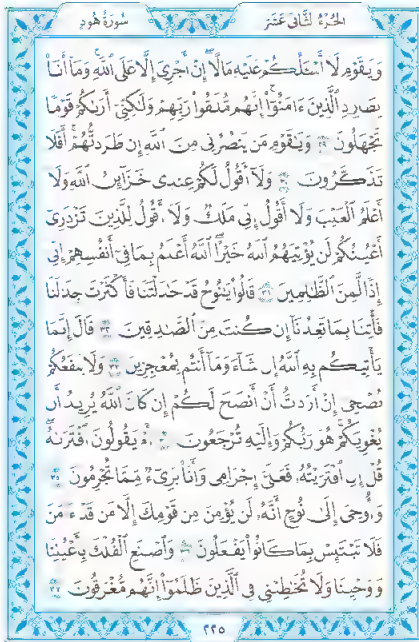 الجزء الثاني عشر
سورة هود
وَيَٰقَوْمِ لَآ أَسْـَٔلُكُمْ عَلَيْهِ مَالًا إِنْ أَجْرِىَ إِلَّا عَلَى ٱللَّهِ وَمَآ أَنَا۠
بِطَارِدِ ٱلَّذِينَ ءَامَنُوٓا۟ إِنَّهُم مُّلَٰقُوا۟ رَبِّهِمْ وَلَٰكِنِّىٓ أَرَىٰكُمْ قَوْمًا
تَجْهَلُونَ ٢٩ وَيَٰقَوْمِ مَن يَنصُرُنِى مِنَ ٱللَّهِ إِن طَرَدتُّهُمْ أَفَلَا
تَذَكَّرُونَ ٣٠ وَلَآ أَقُولُ لَكُمْ عِندِى خَزَآئِنُ ٱللَّهِ وَلَآ
أَعْلَمُ ٱلْغَيْبَ وَلَآ أَقُولُ إِنِّى مَلَكٌ وَلَآ أَقُولُ لِلَّذِينَ تَزْدَرِىٓ
أَعْيُنُكُمْ لَن يُؤْتِيَهُمُ ٱللَّهُ خَيْرًا ٱللَّهُ أَعْلَمُ بِمَا فِىٓ أَنفُسِهِمْ إِنِّىٓ
إِذًا لَّمِنَ ٱلظَّٰلِمِينَ ٣١ قَالُوا۟ يَٰنُوحُ قَدْ جَٰدَلْتَنَا فَأَكْثَرْتَ جِدَٰلَنَا
فَأْتِنَا بِمَا تَعِدُنَآ إِن كُنتَ مِنَ ٱلصَّٰدِقِينَ ٣٢ قَالَ إِنَّمَا
يَأْتِيكُم بِهِ ٱللَّهُ إِن شَآءَ وَمَآ أَنتُم بِمُعْجِزِينَ ٣٣ وَلَا يَنفَعُكُمْ
نُصْحِىٓ إِنْ أَرَدتُّ أَنْ أَنصَحَ لَكُمْ إِن كَانَ ٱللَّهُ يُرِيدُ أَن
يُغْوِيَكُمْ هُوَ رَبُّكُمْ وَإِلَيْهِ تُرْجَعُونَ ٣٤ أَمْ يَقُولُونَ ٱفْتَرَىٰهُ
قُلْ إِنِ ٱفْتَرَيْتُهُۥ فَعَلَىَّ إِجْرَامِى وَأَنَا۠ بَرِىٓءٌ مِّمَّا تُجْرِمُونَ ٣٥
وَأُوحِىَ إِلَىٰ نُوحٍ أَنَّهُۥ لَن يُؤْمِنَ مِن قَوْمِكَ إِلَّا مَن قَدْ ءَامَنَ
فَلَا تَبْتَئِسْ بِمَا كَانُوا۟ يَفْعَلُونَ ٣٦ وَٱصْنَعِ ٱلْفُلْكَ بِأَعْيُنِنَا
وَوَحْيِنَا وَلَا تُخَٰطِبْنِى فِى ٱلَّذِينَ ظَلَمُوٓا۟ إِنَّهُم مُّغْرَقُونَ ٣٧
٢٢٥